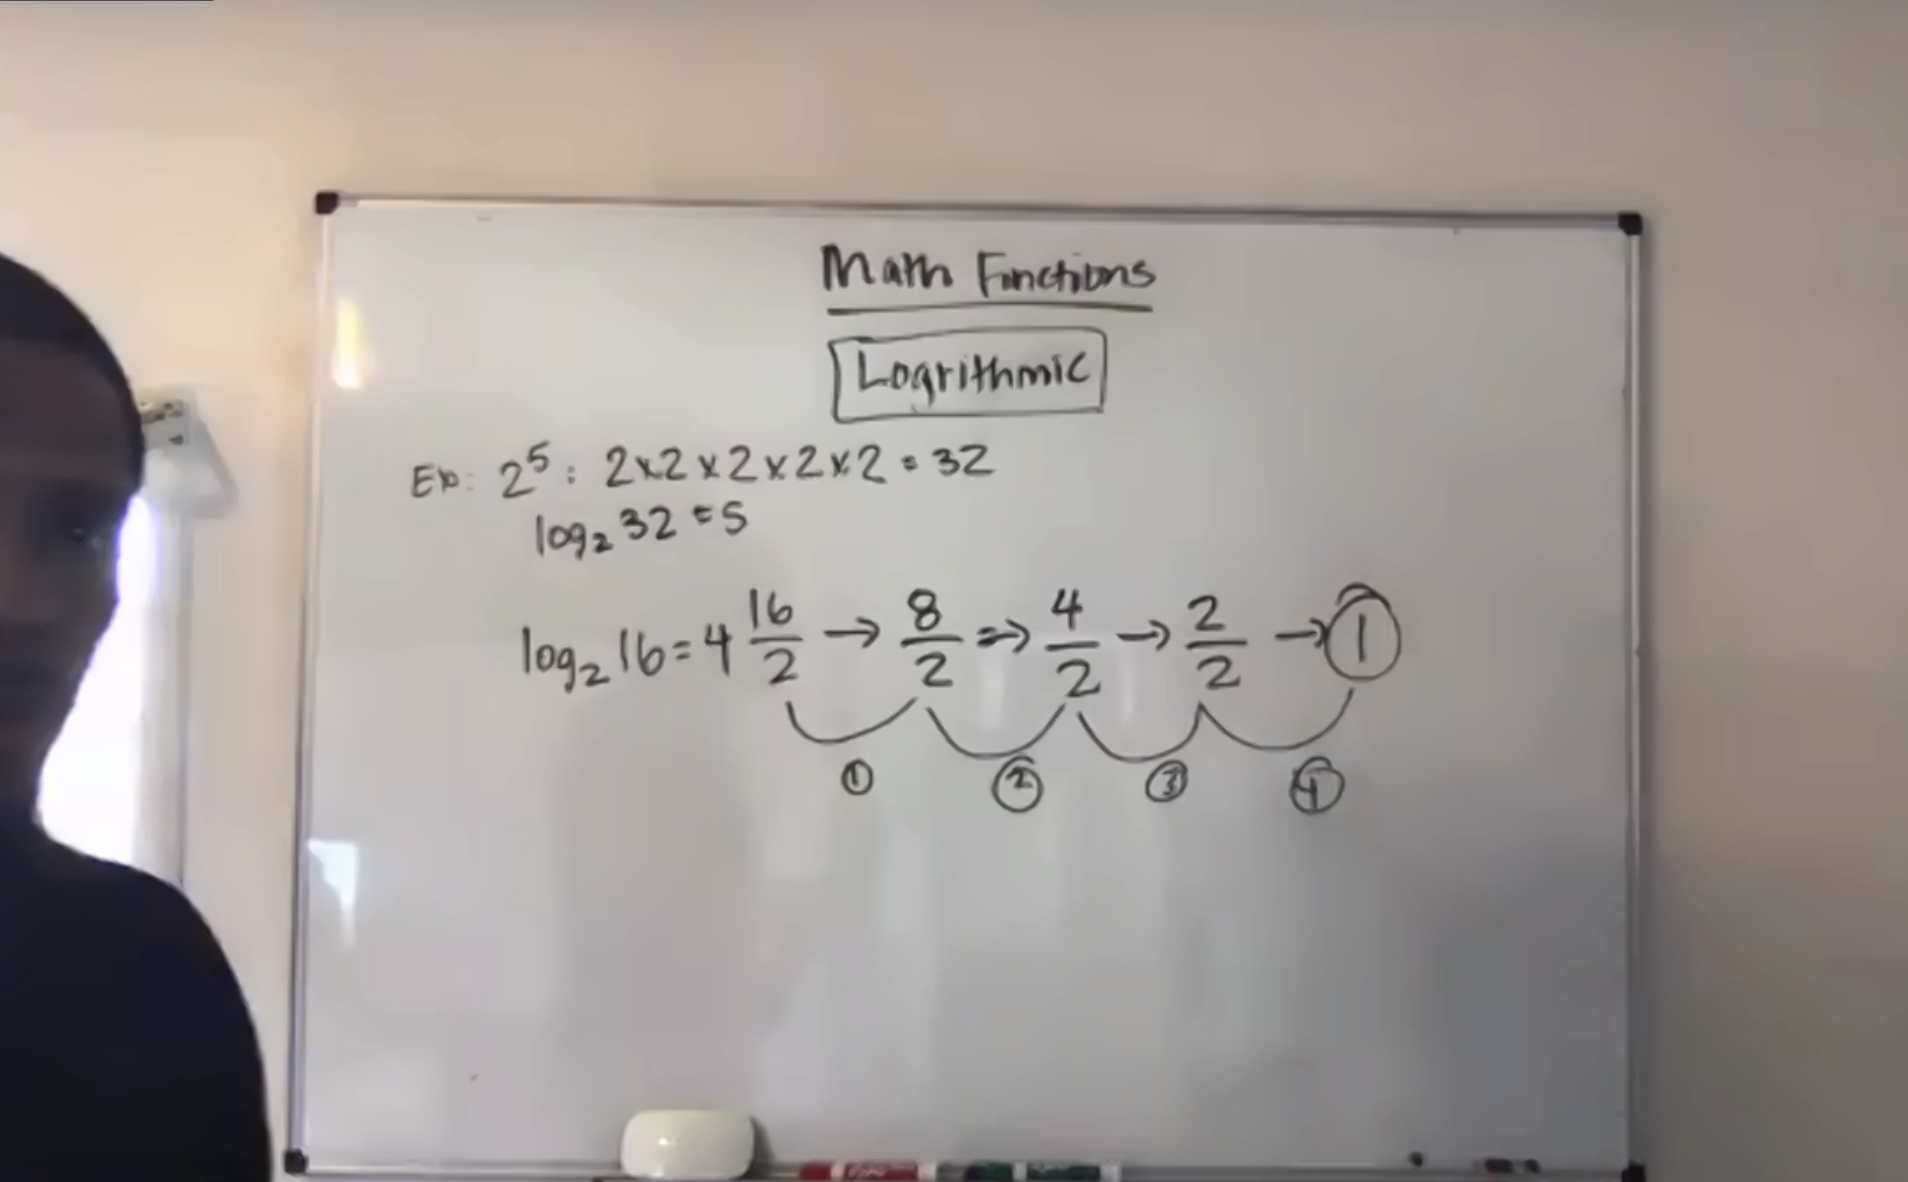 Math Functions
Logrithmic
Ex: 2⁵: 2x2x2x2x2=32
log₂ 32=5
log₂ 16=4 16/2 → 8/2 => 4/2 → 2/2 → 1
1 2 3 4